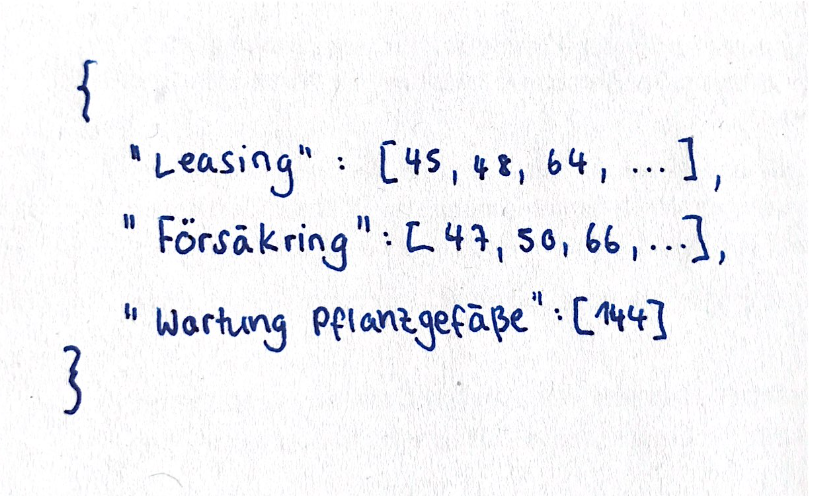 {
"Leasing" : [45, 48, 64, ...],
"Försäkring": [47, 50, 66, ...],
"Wartung Pflanzgefäße": [144]
}